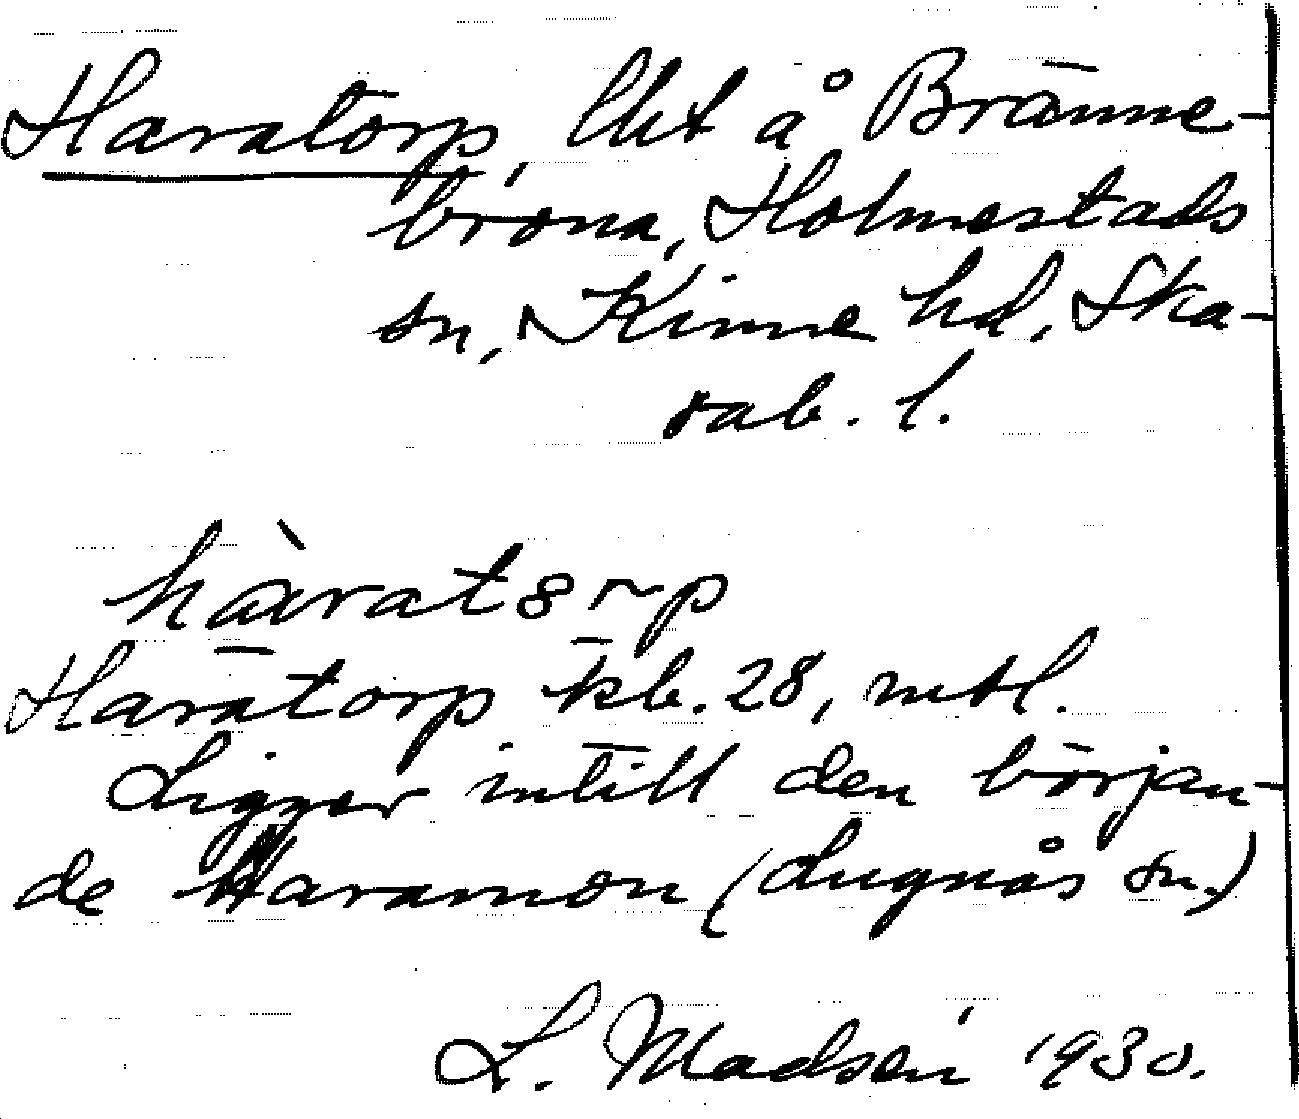 Haratorp, lht å Bränne-
brona, Holmestads
sn, Kinne hd, Ska-
rab. l.
hàratorp
Haratorp kb. 28, mtl.
Ligger intill den början-
de Haramon (Lugnås sn.)
L. Madsén 1930.